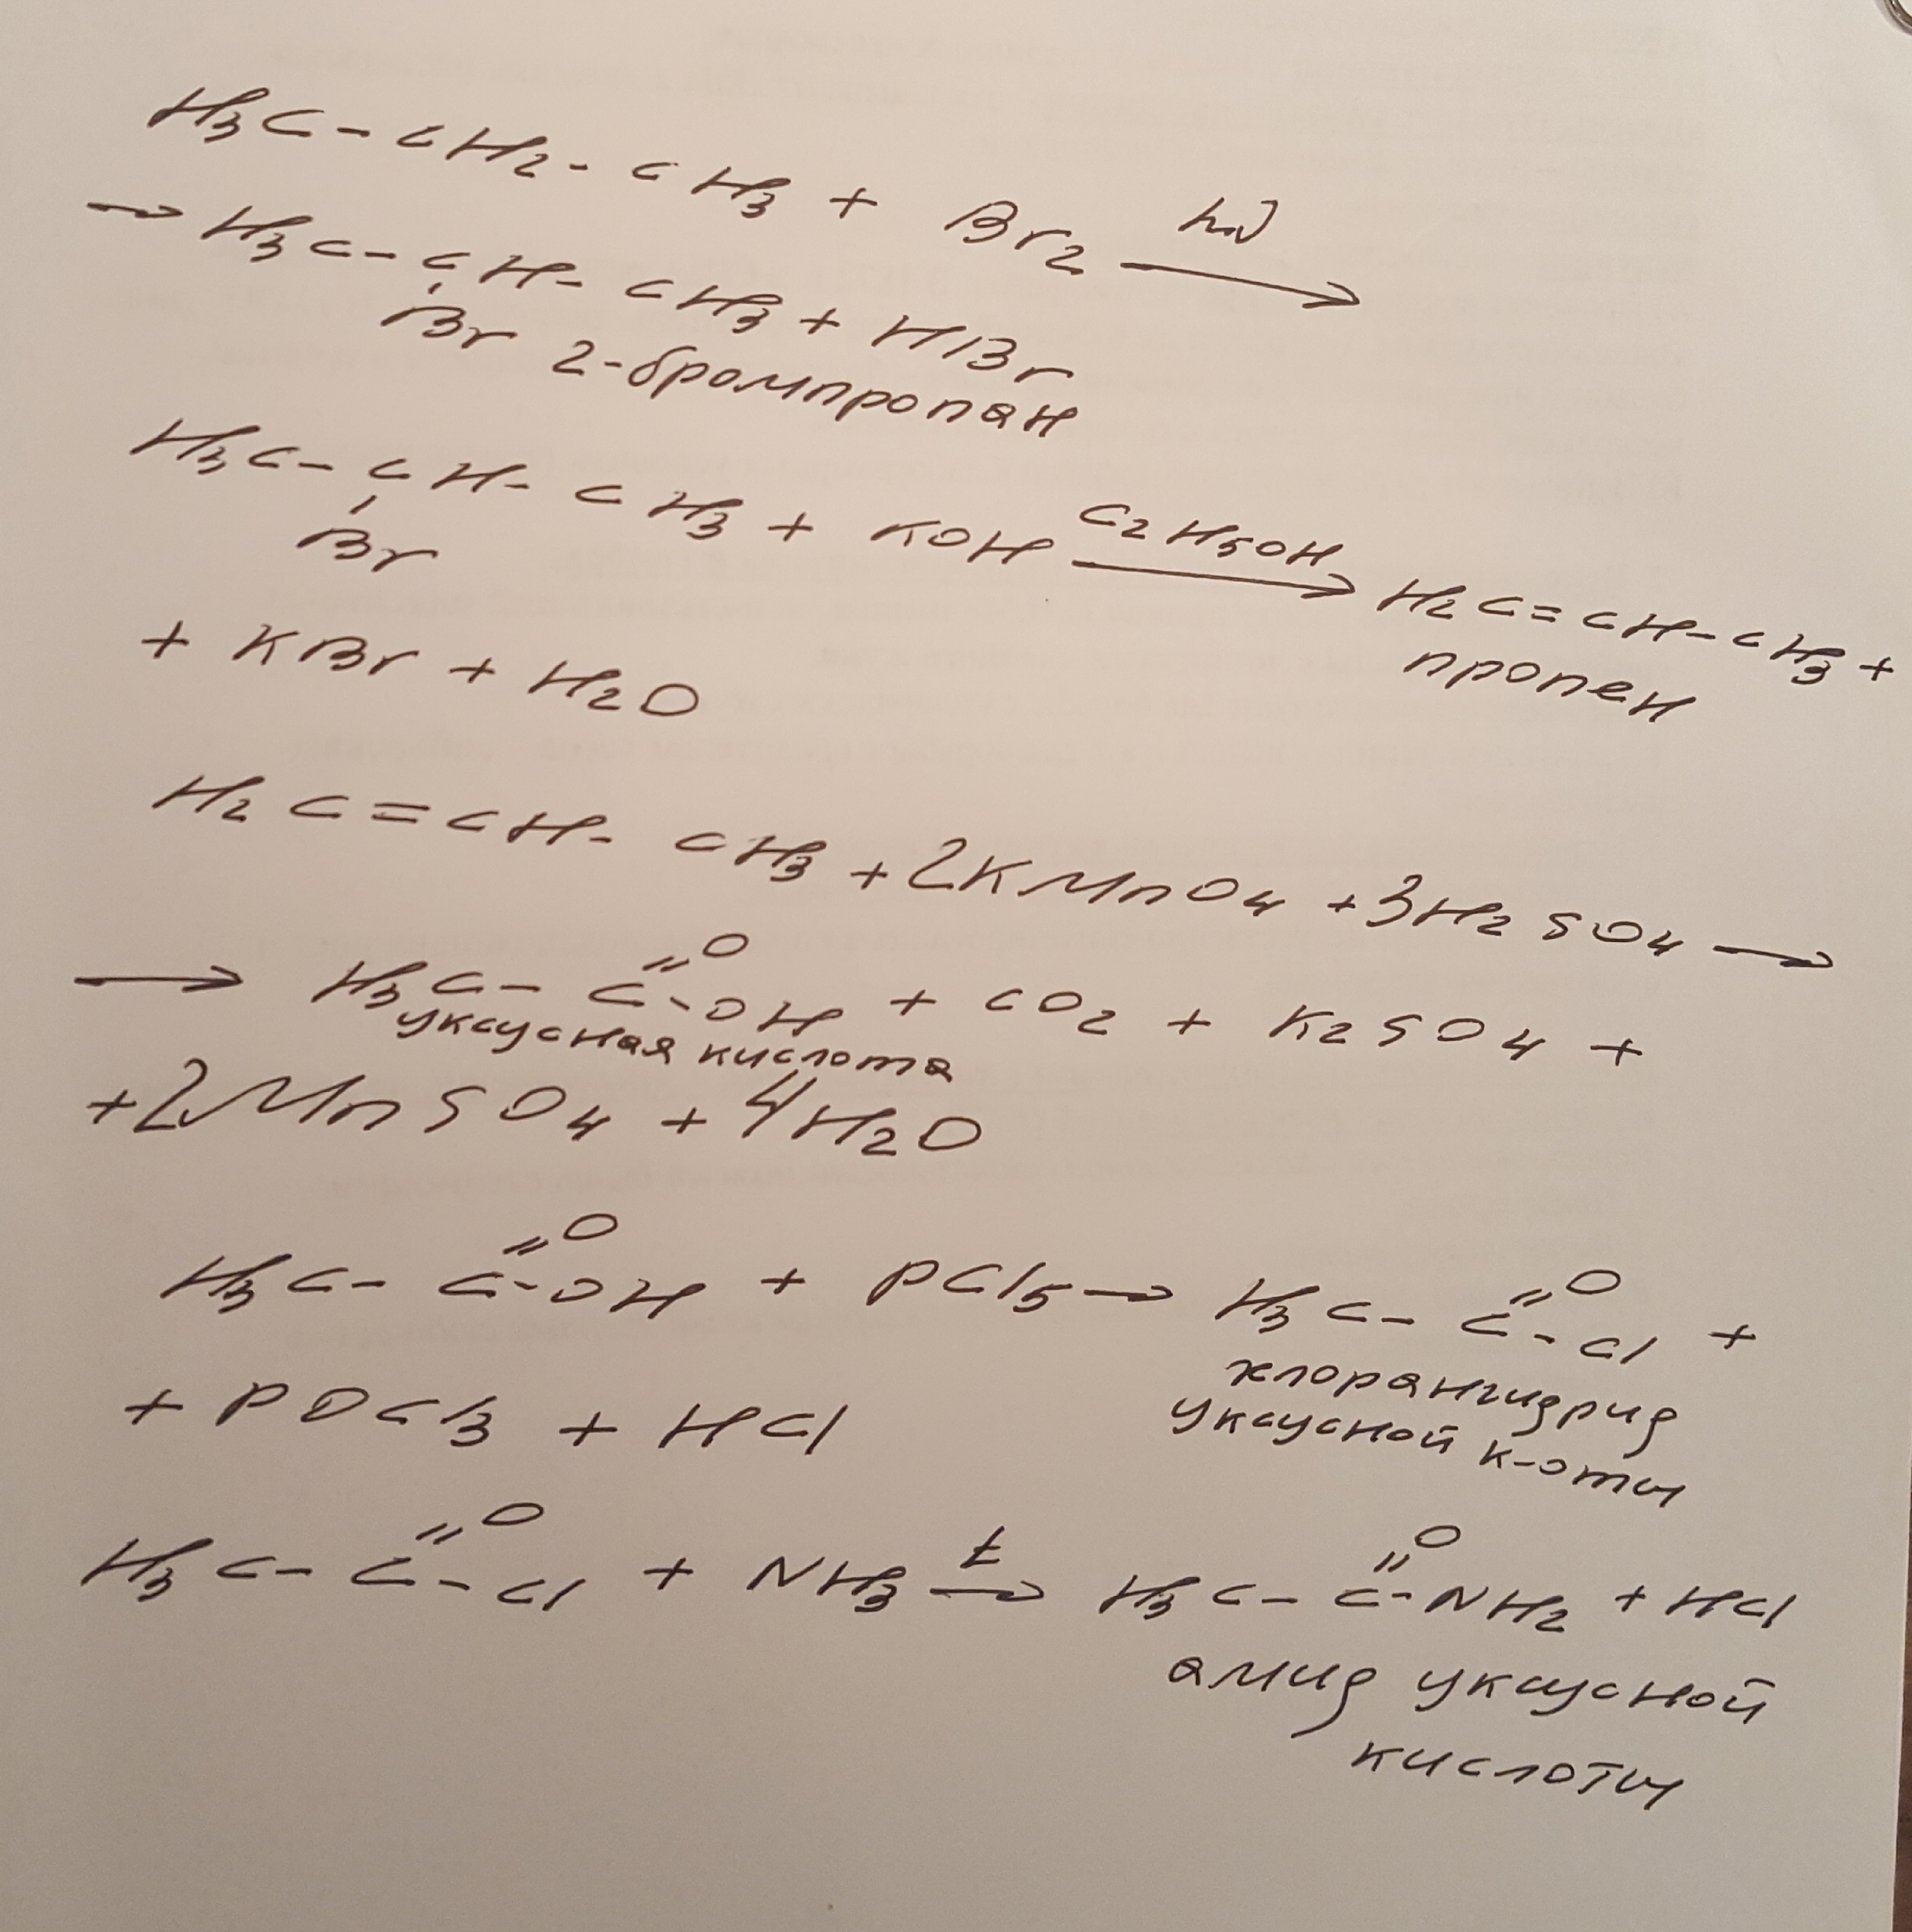 H3C-CH2-CH3 + Br2 hν →
→ H3C-CH-CH3 + HBr
Br 2-бромпропан
H3C-CH-CH3 + KOH C2H5OH → H2C=CH-CH3 +
Br
пропен
+ KBr + H2O
H2C=CH-CH3 + 2KMnO4 + 3H2SO4 →
→ H3C-C=O-OH + CO2 + K2SO4 +
уксусная кислота
+ 2MnSO4 + 4H2O
H3C-C=O-OH + PCl5 → H3C-C=O-Cl +
хлорангидрид
уксусной к-оты
+ POCl3 + HCl
H3C-C=O-Cl + NH3 t → H3C-C=O-NH2 + HCl
амид уксусной
кислоты